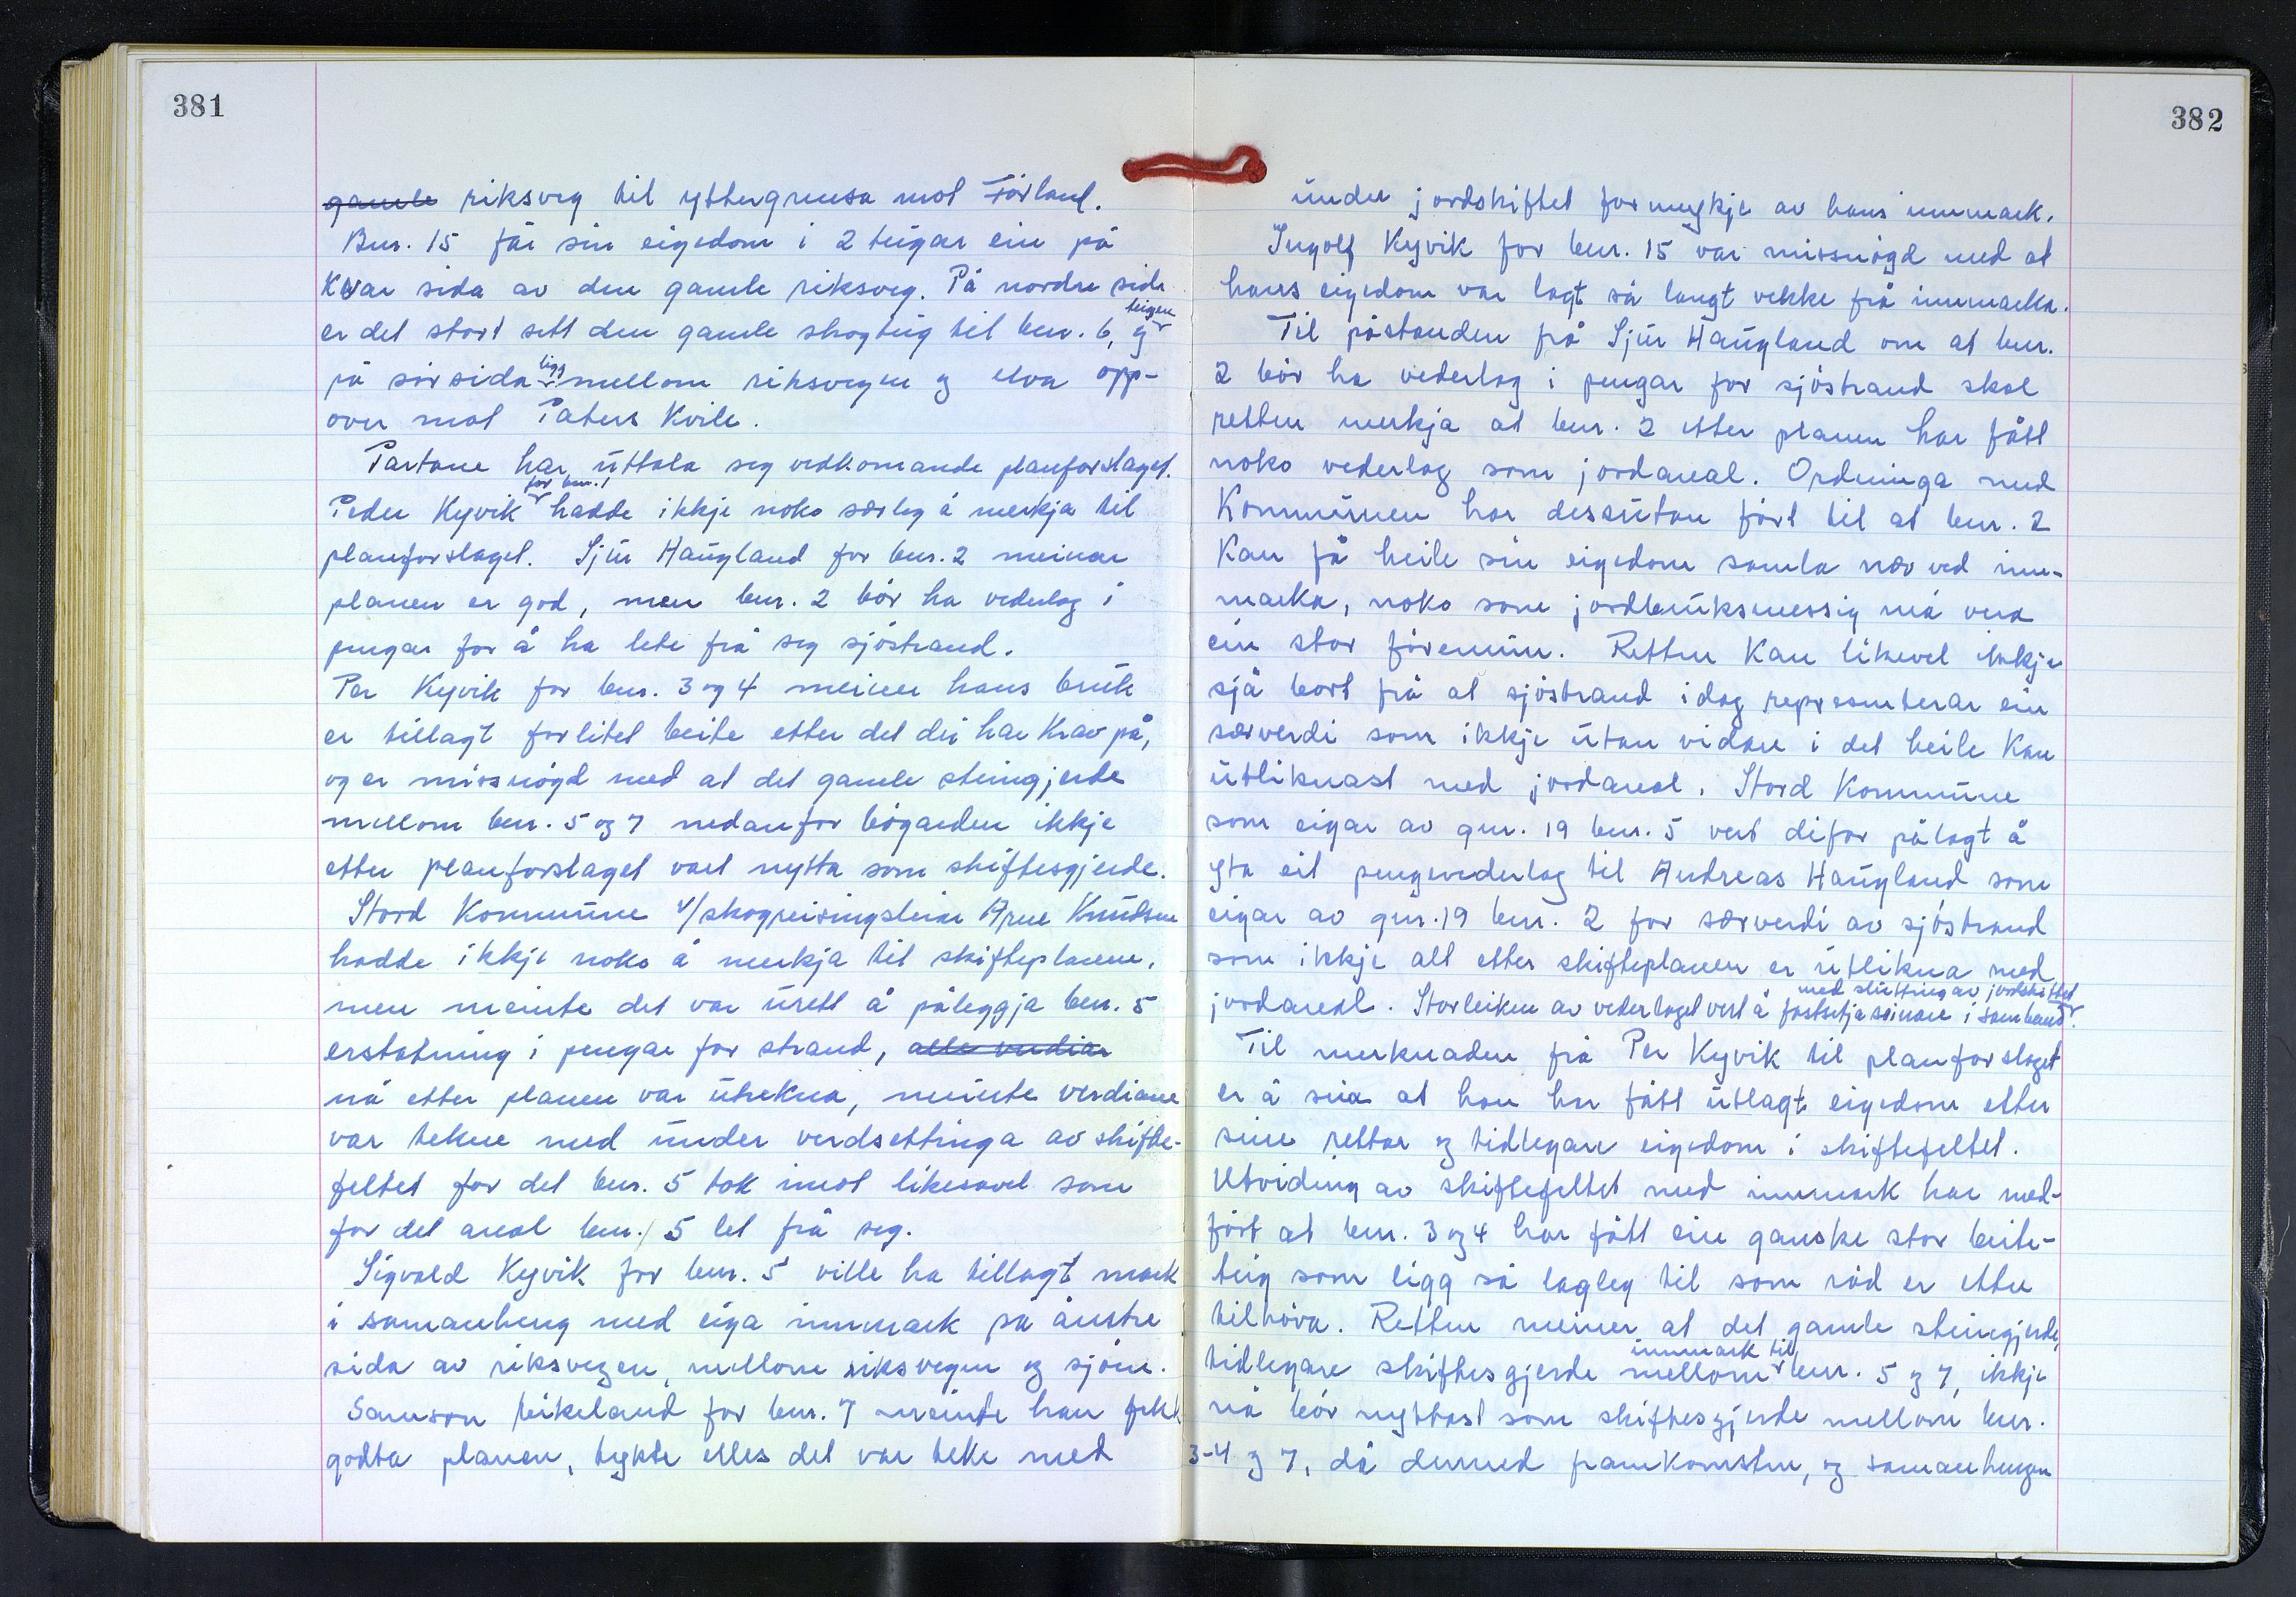 381
gamle riksveg til yttergrensa mot Förland.
Bnr. 15 får sin eigedom i 2 teigar ein på
Kvar sida av den gamle riksveg. På nordre sida
er det stort sett den gamle skogteig til bnr. 6, og teigen
på sörsida ligg mellom riksvegen og elva opp-
over mot Paters Kvile.
Partane har uttala seg vedkomande planforslaget.
Peder Kyvik for bnr. 1 hadde ikkje noko særleg å merkja til
planforslaget. Sjur Haugland for bnr. 2 meinar
planen er god, men bnr. 2 bör ha vederlag i
pengar for å ha lete frå seg sjöstrand.
Per Kyvik for bnr. 3 og 4 meiner hans bruk
er tillagt forlitet beite etter det dei har Krav på,
og er missnögd med at det gamle steingjerde
mellom bnr. 5 og 7 nedanfor bögarden ikkje
etter planforslaget vart nytta som skiftesgjerde.
Stord Kommune v/skogreisingsleiar Arne Knudsen
hadde ikkje noko å merkja til skifteplanen,
men meinte det var urett å påleggja bnr. 5
erstatning i pengar for strand, alle verdiar
nå etter planen var utrekna, meinte verdiane
var tekne med under verdsettinga av skifte-
feltet for det bnr. 5 tok imot likesovel som
for det areal bnr. 5 let frå seg.
Sigvald Kyvik for bnr. 5 ville ha tillagt mark
i samanheng med eiga innmark på austre
sida av riksvegen, mellom riksvegen og sjöen.
Samson Leikeland for bnr. 7 meinte han fekk
godta planen, tykte elles det var teke med
382
under jordskiftet formeykje av hans innmark.
Ingolf Kyvik for bnr. 15 var missnögd med at
hans eigedom var lagt så langt vekke frå innmarka.
Til påstanden frå Sjur Haugland om at bnr.
2 bör ha vederlag i pengar for sjöstrand skal
retten merkja at bnr. 2 etter planen har fått
noko vederlag som jordareal. Ordninga med
Kommunen har dessutan fört til at bnr. 2
Kan få heile sin eigedom samla nær ved inn-
marka, noko som jordbruksmessig må vera
ein stor föremun. Retten Kan likevel ikkje
sjå bort frå at sjöstrand idag representerar ein
særverdi som ikkje utan vidare i det heile Kan
utliknast med jordareal. Stord Kommune
som eigar av gnr. 19 bnr. 5 vert difor pålagt å
yta eit pengevederlag til Andreas Haugland som
eigar av gnr. 19 bnr. 2 for særverdi av sjöstrand
som ikkje alt etter skifteplanen er utlikna med
jordareal. Storleiken av vederlaget vert å fastsetja seinare i samband med slutting av jordskiftet.
Til merknaden frå Per Kyvik til planforslaget
er å seia at han har fått utlagt eigedom etter
sine rettar og tidlegare eigedom i skiftefeltet.
Utviding av skiftefeltet med innmark har med-
fört at bnr. 3 og 4 har fått ein ganske stor beite-
teig som ligg så lagleg til som råd er etter
tilhöva. Retten meiner at det gamle steingjerde,
tidlegare skiftesgjerde mellom innmark til bnr. 5 og 7, ikkje
nå bör nyttast som skiftesgjerde mellom bnr.
3-4 og 7, då dermed framkomsten, og samanhengen